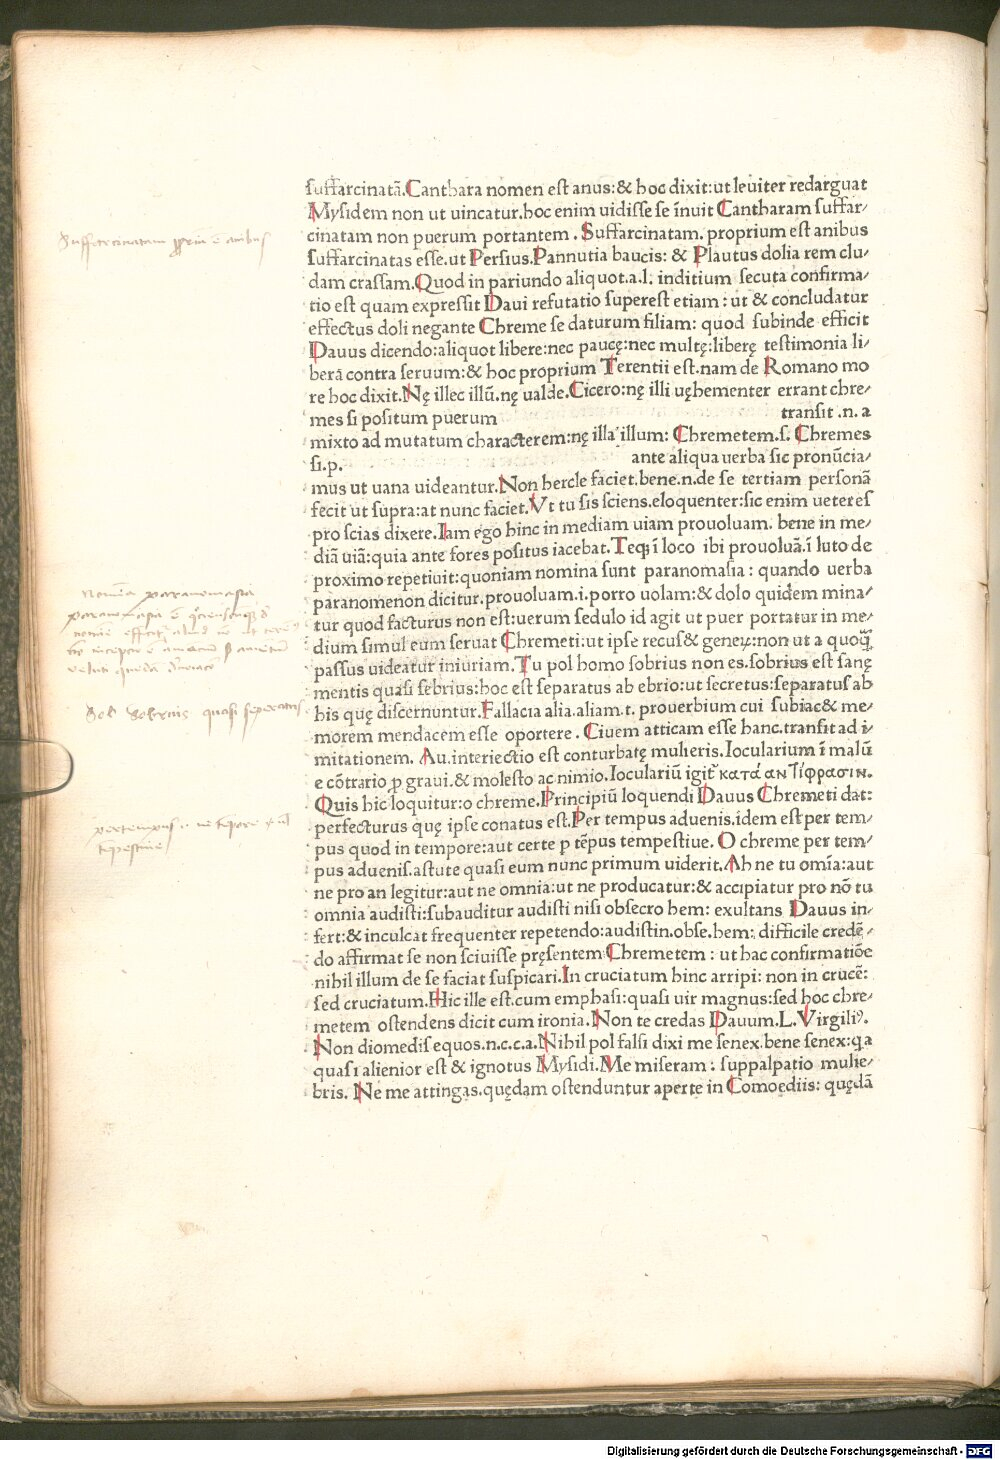 suffarcinatā.Canthara nomen est anus:& hoc dixit:ut leuiter redarguat
Mysidem non ut uincatur.hoc enim uidisse se īnuit Cantharam suffar-
cinatam non puerum portantem. Suffarcinatam. proprium est anibus
suffarcinatas esse.ut Persius.Pannutia baucis: & Plautus dolia rem clu-
dam crassam.Quod in pariundo aliquot.a.l. inditium secuta confirma-
tio est quam expressit Daui refutatio superest etiam: ut & concludatur
effectus doli negante Chreme se daturum filiam: quod subinde efficit
Dauus dicendo:aliquot libere:nec paucę:nec multę:liberę testimonia li-
berā contra seruum:& hoc proprium Terentii est.nam de Romano mo
re hoc dixit.Nę illec illū.nę ualde.Cicero:nę illi uęhementer errant chre-
mes si positum puerum transit .n. a
mixto ad mutatum characterem:nę illa illum: Chremetem.s. Chremes
si.p. ante aliqua uerba sic pronūcia-
mus ut uana uideantur.Non hercle faciet.bene.n.de se tertiam personā
fecit ut supra:at nunc faciet.Vt tu sis sciens.eloquenter:sic enim ueteres
pro scias dixere.Iam ego hinc in mediam uiam prouoluam. bene in me-
diā uiā:quia ante fores positus iacebat.Teqꝫ ī loco ibi prouoluā.ī luto de
proximo repetiuit:quoniam nomina sunt paranomasia: quando uerba
paranomenon dicitur.prouoluam.i.porro uolam:& dolo quidem mina-
tur quod facturus non est:uerum sedulo id agit ut puer portatur in me-
dium simul eum seruat Chremeti:ut ipse recus& geneꝝ:non ut a quoqꝫ
passus uideatur iniuriam.Tu pol homo sobrius non es.sobrius est sanę
mentis quasi sebrius:hoc est separatus ab ebrio:ut secretus:separatus ab
his quę discernuntur.Fallacia alia.aliam.t. prouerbium cui subiac& me-
morem mendacem esse oportere. Ciuem atticam esse hanc.transit ad i-
mitationem. Au.interiectio est conturbatę mulieris.Iocularium ī malū
e cōtrario ꝓ graui.& molesto ac nimio.Iocularium igitᷣ κατά αντίφρασιν.
Quis hic loquitur:o chreme.Principiū loquendi Dauus Chremeti dat:
perfecturus quę ipse conatus est.Per tempus aduenis.idem est per tem-
pus quod in tempore:aut certe p tēpus tempestiue. O chreme per tem-
pus aduenis.astute quasi eum nunc primum uiderit.Ah ne tu omīa:aut
ne pro an legitur:aut ne omnia:ut ne producatur:& accipiatur pro nō tu
omnia audisti:subauditur audisti nisi obsecro hem: exultans Dauus in-
fert:& inculcat frequenter repetendo:audistin.obse.hem: difficile credē-
do affirmat se non sciuisse pręsentem Chremetem: ut hac confirmatiōe
nihil illum de se faciat suspicari.In cruciatum hinc arripi: non in crucē:
sed cruciatum.Hic ille est.cum emphasi:quasi uir magnus:sed hoc chre-
metem ostendens dicit cum ironia.Non te credas Dauum.L.Virgiliꝰ.
Non diomedis equos.n.c.c.a.Nihil pol falsi dixi me senex.bene senex:qa
quasi alienior est & ignotus Mysidi.Me miseram: suppalpatio mulie-
bris. Ne me attingas.quędam ostenduntur aperte in Comoediis: quędā
Suffarcinatam
paranomasia
quasi separatus
pertempus
Digitalisierung gefördert durch die Deutsche Forschungsgemeinschaft - DFG